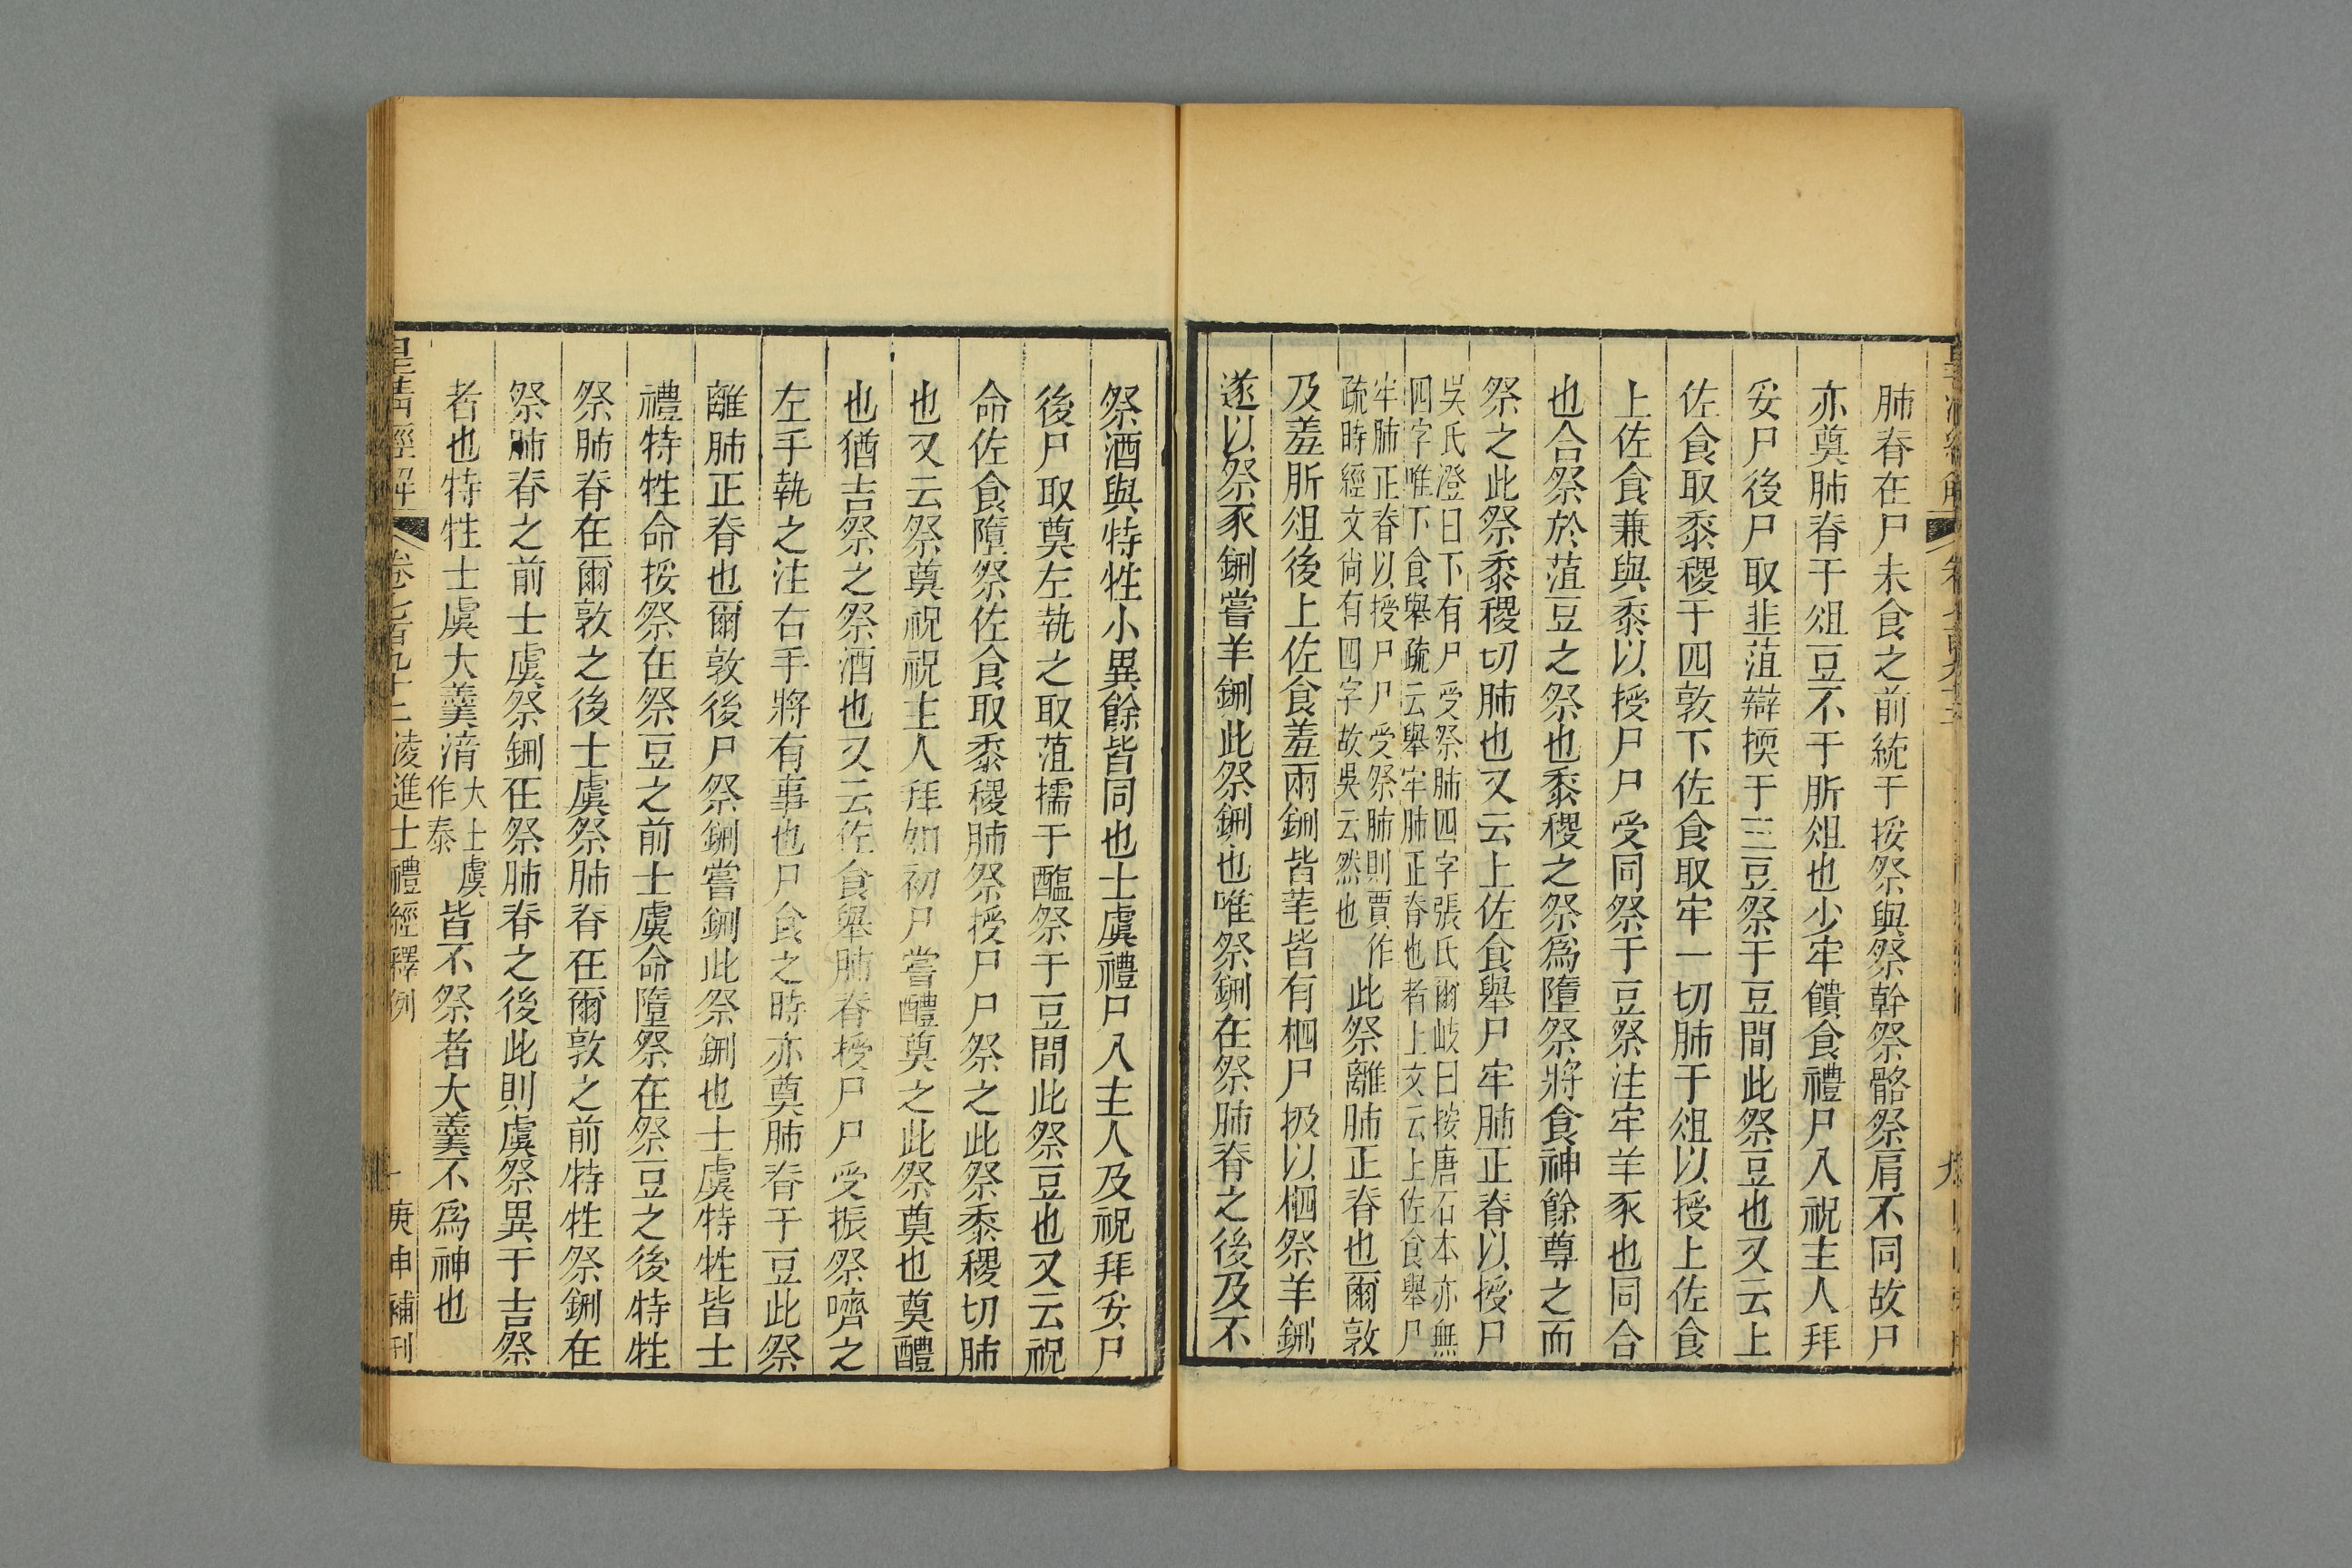 肺脊在尸未食之前統于挼祭與祭幹祭骼祭肩不同故尸
亦奠肺脊于俎豆不于肵俎也少牢饋食禮尸入祝主人拜
妥尸後尸取韭菹辯擩于三豆祭于豆間此祭豆也又云上
佐食取黍稷于四敦下佐食取牢一切肺于俎以授上佐食
上佐食兼與黍以授尸尸受同祭于豆祭注牢羊豕也同合
也合祭於菹豆之祭也黍稷之祭爲墮祭將食神餘尊之而
祭之此祭黍稷切肺也又云上佐食舉尸牢肺正脊以授尸
吳氏澄曰下有尸受祭肺四字張氏爾岐曰按唐石本亦無
四字唯下食舉疏云舉牢肺正脊也者上文云上佐食舉尸
牢肺正脊以授尸尸受祭肺則賈作
疏時經文尚有四字故吳云然也
此祭離肺正脊也爾敦
及羞肵俎後上佐食羞兩鉶皆芼皆有柶尸扱以柶祭羊鉶
遂以祭豕鉶嘗羊鉶此祭鉶也唯祭鉶在祭肺脊之後及不
祭酒與特牲小異餘皆同也士虞禮尸入主人及祝拜妥尸
後尸取奠左執之取菹擩于醢祭于豆間此祭豆也又云祝
命佐食墮祭佐食取黍稷肺祭授尸尸祭之此祭黍稷切肺
也又云祭奠祝祝主人拜如初尸嘗醴奠之此祭奠也奠醴
也猶吉祭之祭酒也又云佐食舉肺脊授尸尸受振祭嚌之
左手執之注右手將有事也尸食之時亦奠肺脊于豆此祭
離肺正脊也爾敦後尸祭鉶嘗鉶此祭鉶也士虞特牲皆士
禮特牲命挼祭在祭豆之前士虞命墮祭在祭豆之後特牲
祭肺脊在爾敦之後士虞祭肺脊在爾敦之前特牲祭鉶在
祭肺脊之前士虞祭鉶在祭肺脊之後此則虞祭異于吉祭
者也特牲士虞大羹湆
大士虞
作泰
皆不祭者大羹不爲神也
皇清經解
卷七百九十二
凌進士禮經釋例
庚申補刊